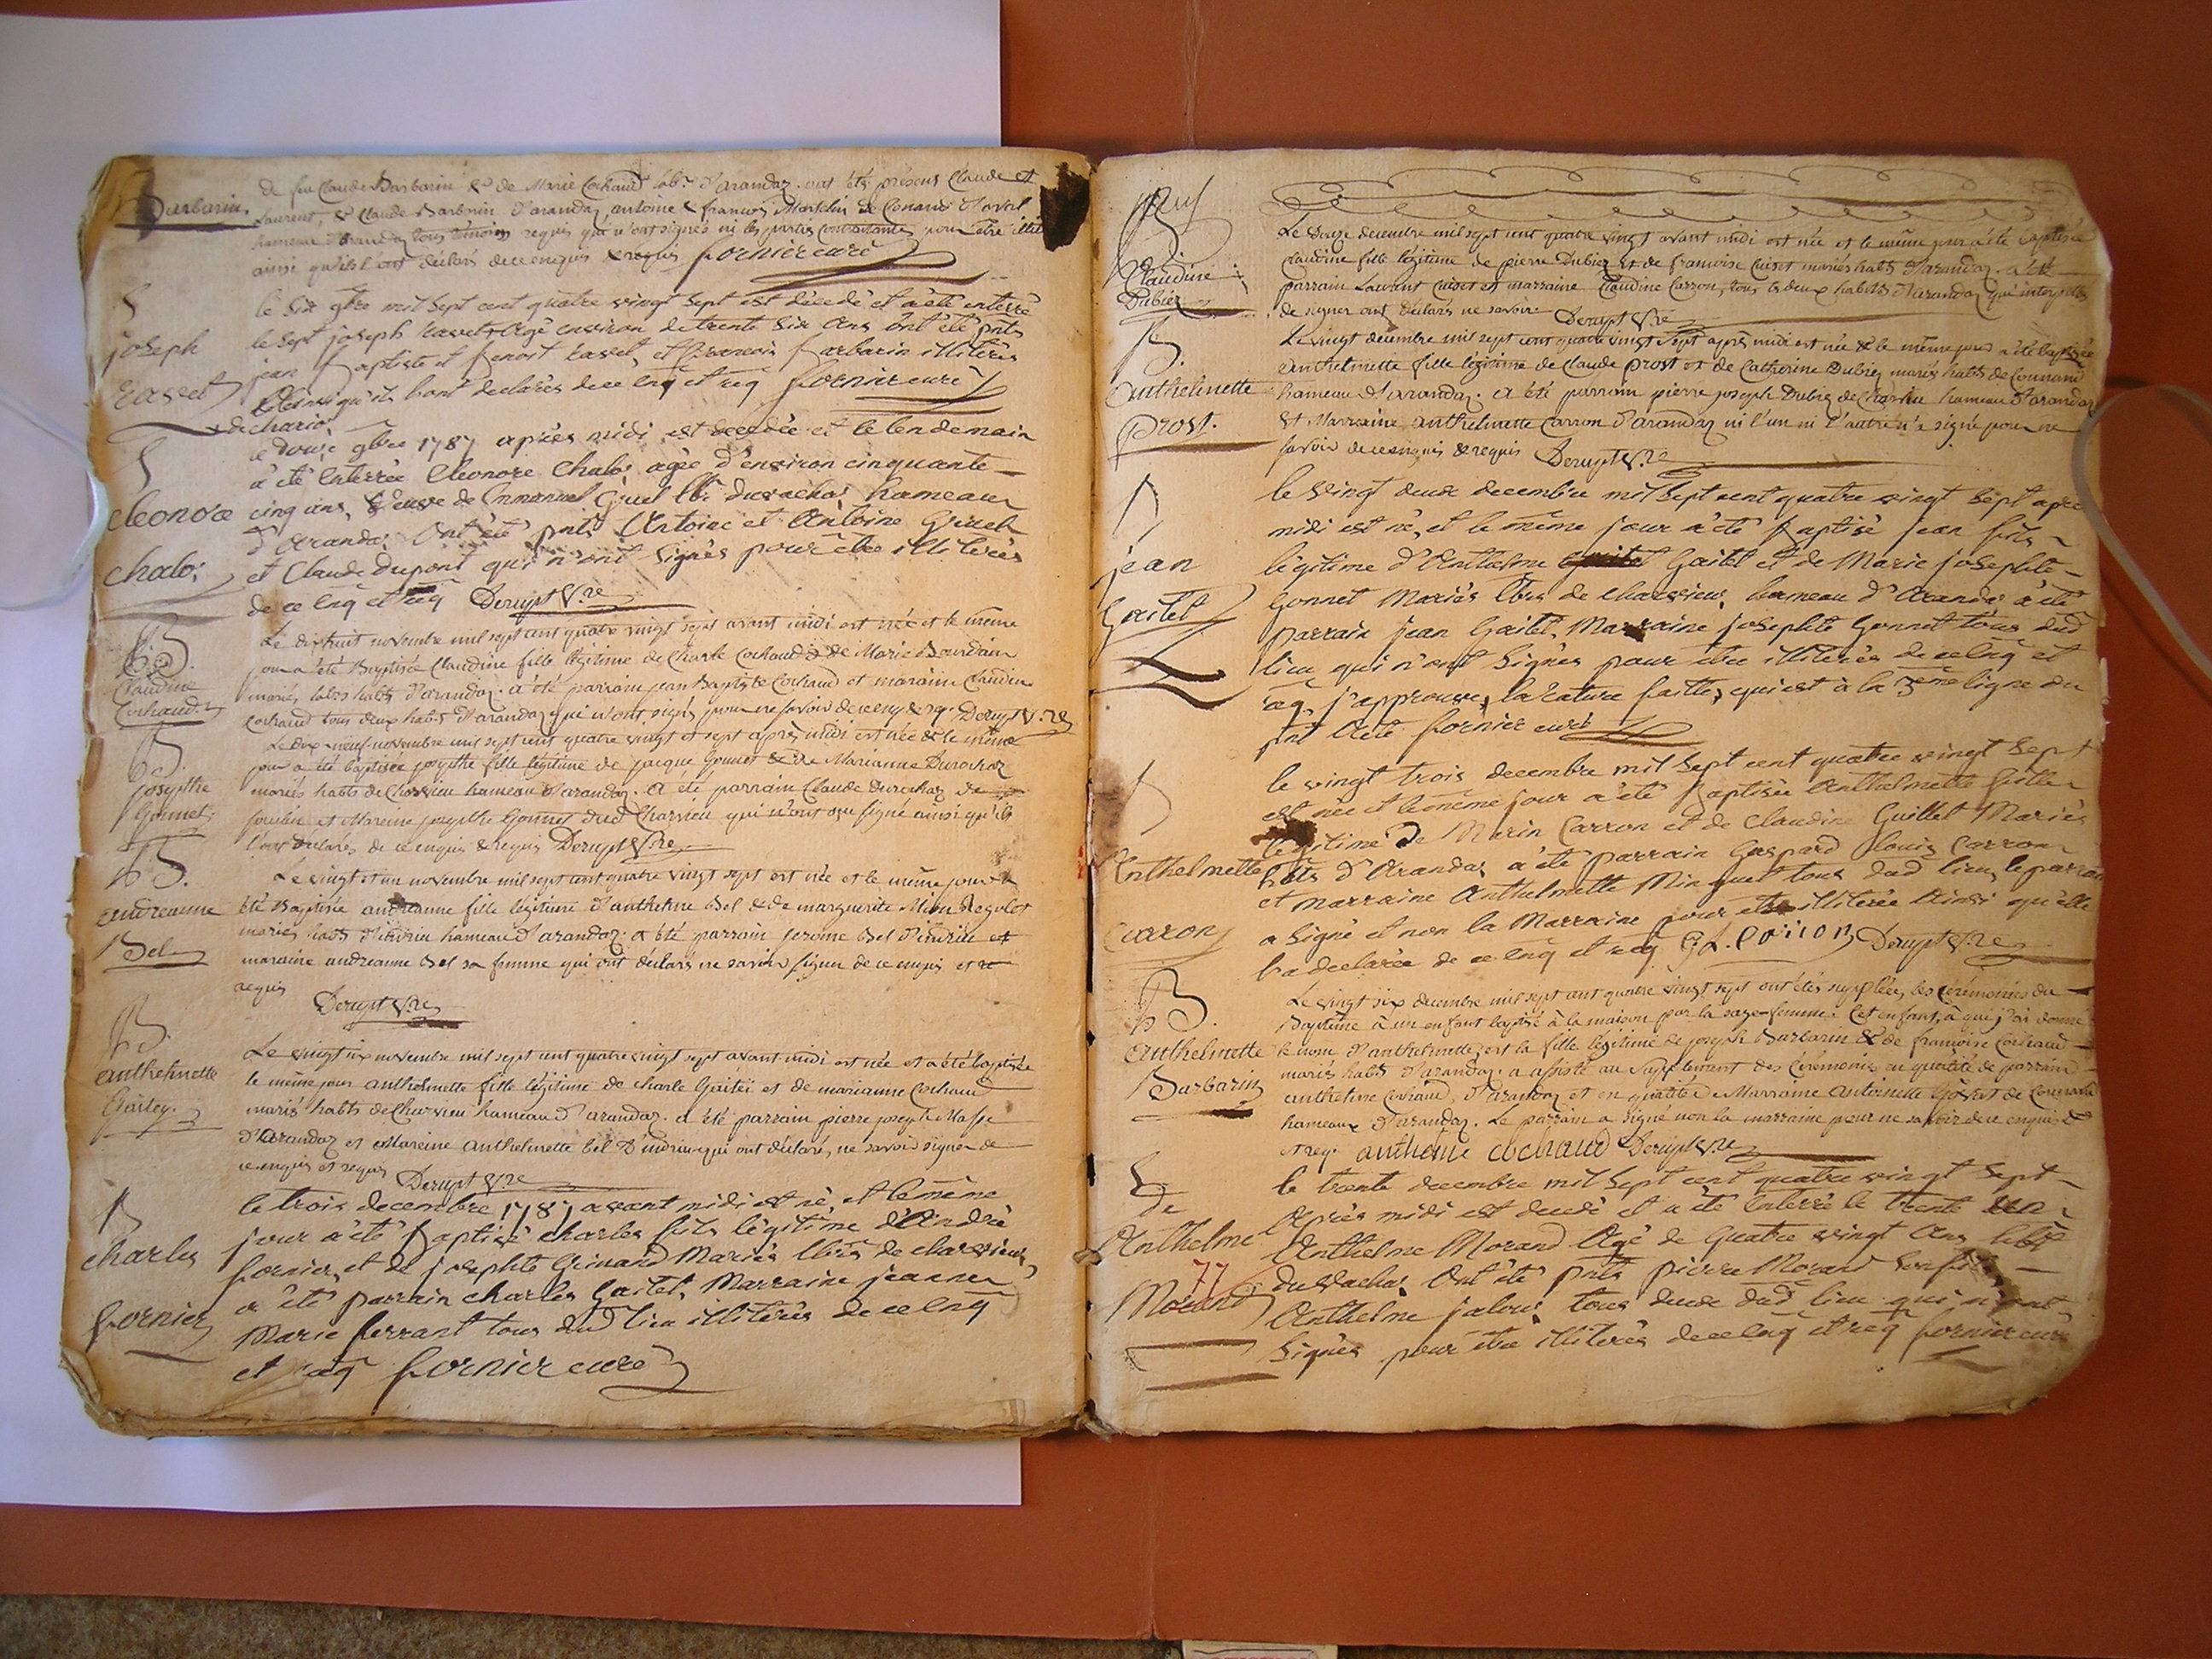 Barbarin.
de feu Claude Barbarin & de Marie Cochaud lab.rs d'arandaz. ont étés présens Claude et
Laurent, & Claude Barbarin d'arandaz, antoine & françois de Conand d'aval
hameau d'arandaz tous témoins requis qui n'ont signés ni les parties contractantes pour être
ainsi qu'ils l'ont déclaré de ce enquis & requis fornier curé
joseph
ravet
le six 9bre mil sept cent quatre vingt sept est décedé et a été enterré
le sept joseph ravet agé environ de trente six ans ont été pnts
jean Baptiste et Benoit ravet, et françois Barbarin illiterés
ainsi qu'ils l'ont declarés de ce enq et req fornier curé
+ de chario
cleonore
chaloi
le douze 9bre 1787 après midi est decedée et le lendemain
a été enterrée Cleonore chaloi agée d'environ cinquante
cinq ans, veuve de Emmanuel hameau
d'aranda. ont été pnts Antoine et Antoine
et Claude dupont qui n'ont signés pour être illiterés
de ce enq et req Derupt V.re
Claudine
Cochaud
Le dixhuit novembre mil sept cent quatre vingt sept avant midi est née et le même
jour a été Baptisée Claudine fille légitime de Charle Cochaud & de Marie Bourdain
mariés labrs habts d'arandaz. a été parrain jean Baptiste Cochaud et maraine Claudine
Cochaud tous deux habts d'arandaz qui n'ont signés pour ne savoir de ce enq & rq. Derupt V.re
B.
josepthe
Gonnet.
Le dix-neuf novembre mil sept cent quatre vingt et sept après midi est née & le même
jour a été baptisée josepthe fille légitime de jacque Gonnet & de Marianne Durochaz
mariés habts de Charvieu hameau d'arandaz. a été parrain Claude Durochaz de
et Mareine josepthe Gonnet dud Charvieu qui n'ont signé ainsi qu'ils
l'ont déclarés de ce enquis & requis Derupt V.re
B.
andreanne
Bel
Le vingt et un novembre mil sept cent quatre vingt sept est née et le même jour a
été Baptisée andréanne fille légitime d'anthelme Bel & de marguerite
mariés habts d'indrieu hameau d'arandaz. a été parrain jerome Bel d'indrieu et
maraine andreanne Bel sa femme qui ont déclarés ne savoir signer de ce enquis et re
requis
Derupt V.re
B.
anthelmette
Gaitey.
Le vingt six novembre mil sept cent quatre vingt sept avant midi est née et a été baptisée
le même jour anthelmette fille légitime de charle Gaitey et de marianne Cochaud
mariés habts de Charvieu hameau d'arandaz. a été parrain pierre joseph Masse
d'arandaz et Mareine anthelmette bel d'indrieu qui ont déclarés ne savoir signer de
ce enquis et requis Derupt V.re
B
charles
fornier
le trois decembre 1787 avant midi est né, et le même
jour a été Baptisé charles fils légitime d'André
fornier, et de josephte Grinand Mariés lbrs de charvieux,
a été parrain charles Gaitet, Marraine jeanne
Marie ferrant tous dud lieu illiterés de ce enq
et req fornier curé
Claudine
Dubiez
Le douze decembre mil sept cent quatre vingt avant midi est née et le même jour a été baptisée
claudine fille légitime de pierre Dubiez et de francoise Cuiset mariés habts d'arandaz. a été
parrain Laurent Cuiset et marraine Claudine Carron, tous les deux habits d'arandaz qui interpellés
de signer ont déclarés ne savoir. Derupt V.re
B.
anthelmette
prost.
Le vingt decembre mil sept cent quatre vingt sept après midi est née & le même jour a été baptisée
anthelmette fille légitime de Claude prost et de Catherine Dubiez mariés habts de Connand
hameau d'arandaz. a été parrain pierre joseph Dubiez de Charvieu hameau d'arandaz
et Marraine anthelmette Carron d'arandaz ni l'un ni l'autre n'a signé pour ne
savoir de ce enquis & requis Derupt V.re
jean
Gaitet
le vingt deux decembre mil sept cent quatre vingt sept apres
midi est né, et le même jour a été Baptisé jean fils
légitime d'Anthelme Gaitet et de Marie josephte
Gonnet Mariés lbrs de charvieux, hameau d'Aranda a été
parrain jean Gaitet, Marraine josephte Gonnet tous dud
lieu qui n'ont Signés pour être illiterés de ce enq et
req. j'approuve, la rature faitte, qui est à la 3eme ligne du
pnt Acte fornier curé
B
Anthelmette
Carron
le vingt trois decembre mil sept cent quatre vingt sept
est née et le même jour a été Baptisée Anthelmette fille
légitime de Merin Carron et de Claudine Guillet Mariés
habts d'Aranda a été parrain Gaspard Louis Carron
et Marraine Anthelmette Minguet tous dud lieu, le parrain
a Signé et non la Marraine pour etre illiterée Ainsi qu'elle
l'a declarée de ce enq et req G L. Cairon Derupt V.re
B.
Anthelmette
Barbarin
Le vingt six decembre mil sept cent quatre vingt sept ont étés supplées les cérémonies du
Baptême à un enfant baptisé à la maison par la sage-femme. Cet enfant, à qui j'ai donné
le nom d'anthelmette, est la fille légitime de joseph Barbarin & de francoise Cochaud
mariés habts d'arandaz. a assisté au supplement des Cérémonies en qualité de parrain
anthelme Cochaud, d'arandaz et en qualité de Marraine Antoinette de Connand
hameau d'arandaz. Le parrain a signé non la marraine pour ne savoir de ce enquis et
et req. anthelme cochaud Derupt V.re
de
Anthelme
Morand
77
le trente decembre mil sept cent quatre vingt sept
Après midi est decedé et a été Enterré le trente un
Anthelme Morand Agé de Quatre vingt Ans
ont été pnts pierre Morand son fils
Anthelme jaloux tous deux dud lieu qui n'ont
Signés pour être illiterés de ce enq et req fornier curé